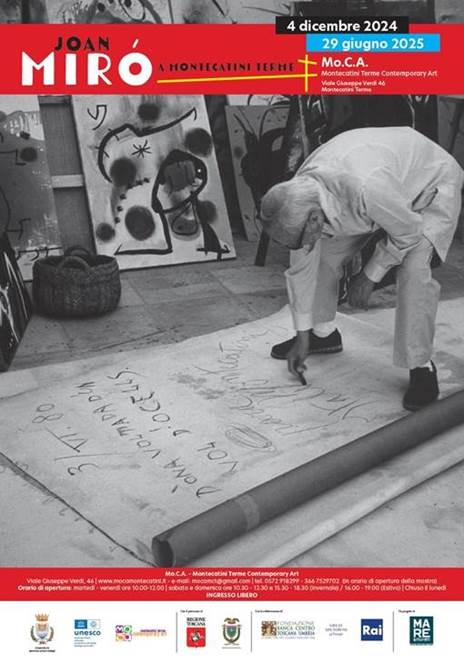 4 dicembre 2024
29 giugno 2025
JOAN
MIRÓ A MONTECATINI TERME
Mo.C.A.
Montecatini Terme Contemporary Art
Viale Giuseppe Verdi 46
Montecatini Terme
3/VI. 80
DONA VOLTADA D'UN
VOL D'OCELLS
Mo.C.A. - Montecatini Terme Contemporary Art
Viale Giuseppe Verdi, 46 | www.mocamontecatini.it - e-mail: mocamct@gmail.com | tel. 0572 918299 - 366 7529702 (in orario di apertura della mostra)
Orario di apertura: martedì - venerdì ore 10.00-12.00 | sabato e domenica ore 10.30 - 12.30 e 15.30 - 18.30 (invernale) / 16.00 - 19.00 (Estivo) | Chiuso il lunedì
INGRESSO LIBERO
unesco
REGIONE TOSCANA
FONDAZIONE
BANCA CENTRO
TOSCANA UMBRIA
Rai
MARE